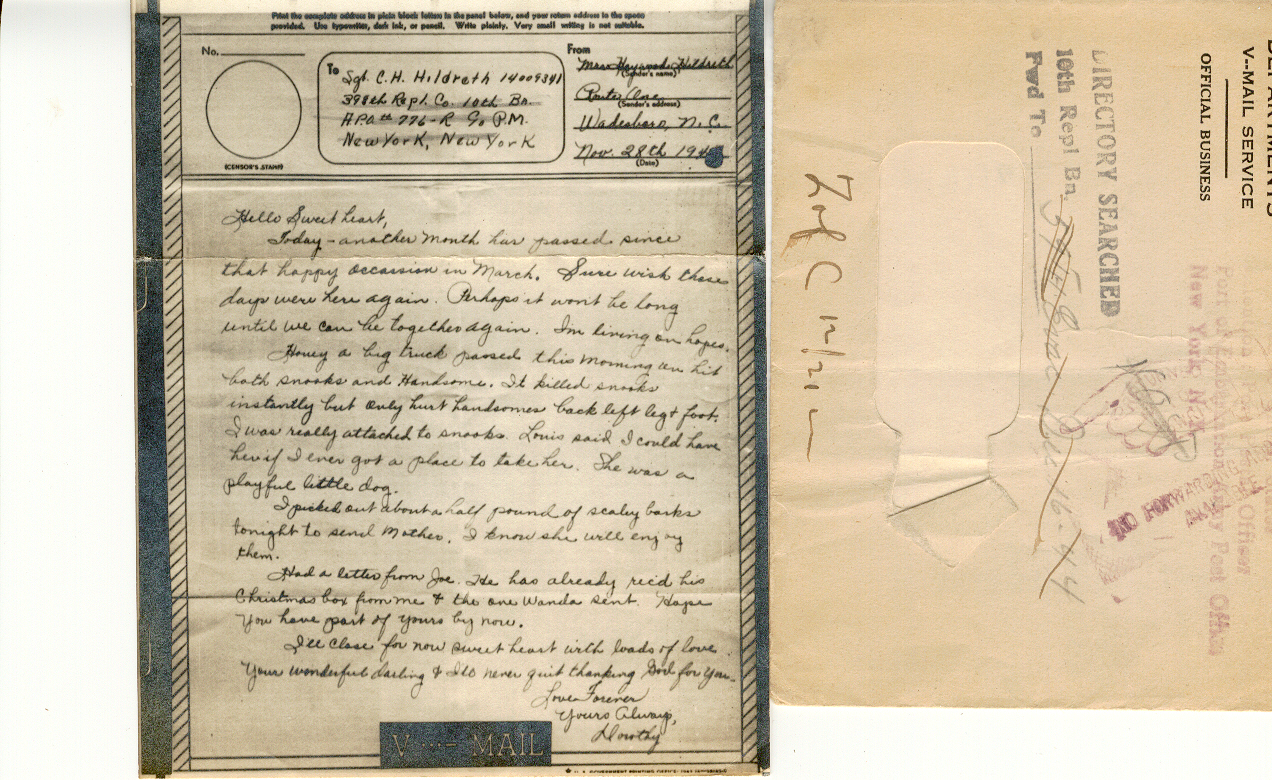 Print the complete address in plain block letters in the panel below, and your return address in the space
provided. Use typewriter, dark ink, or pencil. Write plainly. Very small writing is not suitable.
No.
(CENSOR'S STAMP)
To
Sgt. C. H. Hildreth 14009341
398th Repl. Co. 10th Bn.
A.P.O. # 776-R % P.M.
New York, New York
From
Mrs. Haywood Hildreth
(Sender's name)
Route One
(Sender's address)
Wadesboro, N.C.
Nov. 28th 194
(Date)
Hello Sweet heart,
Today - another month has passed since
that happy occaision in March. Sure wish those
days were here again. Perhaps it won't be long
until we can be together again. I'm living on hopes.
Honey a big truck passed this morning an hit
both snooks and Handsome. It killed snooks
instantly but only hurt handsomes back left leg & foot.
I was really attached to snooks. Louis said I could have
her if I ever got a place to take her. She was a
playful little dog.
I picked out about a half pound of scaley barks
tonight to send Mother. I know she will enjoy
them.
Had a letter from Joe. He has already rec'd his
Christmas box from me & the one Wanda sent. Hope
you have part of yours by now.
I'll close for now sweet heart with loads of love.
Your wonderful darling & I'll never quit thanking God for you.
Love Forever
Yours Always,
Dorothy
V ···- MAIL
U. S. GOVERNMENT PRINTING OFFICE
DEPARTMENTS
V--MAIL SERVICE
OFFICIAL BUSINESS
DIRECTORY SEARCHED
10th Repl Bn.
Fwd To
Dec 16-44
Port of Embarkation Army Post Office
New York N.Y.
NO FORWARD